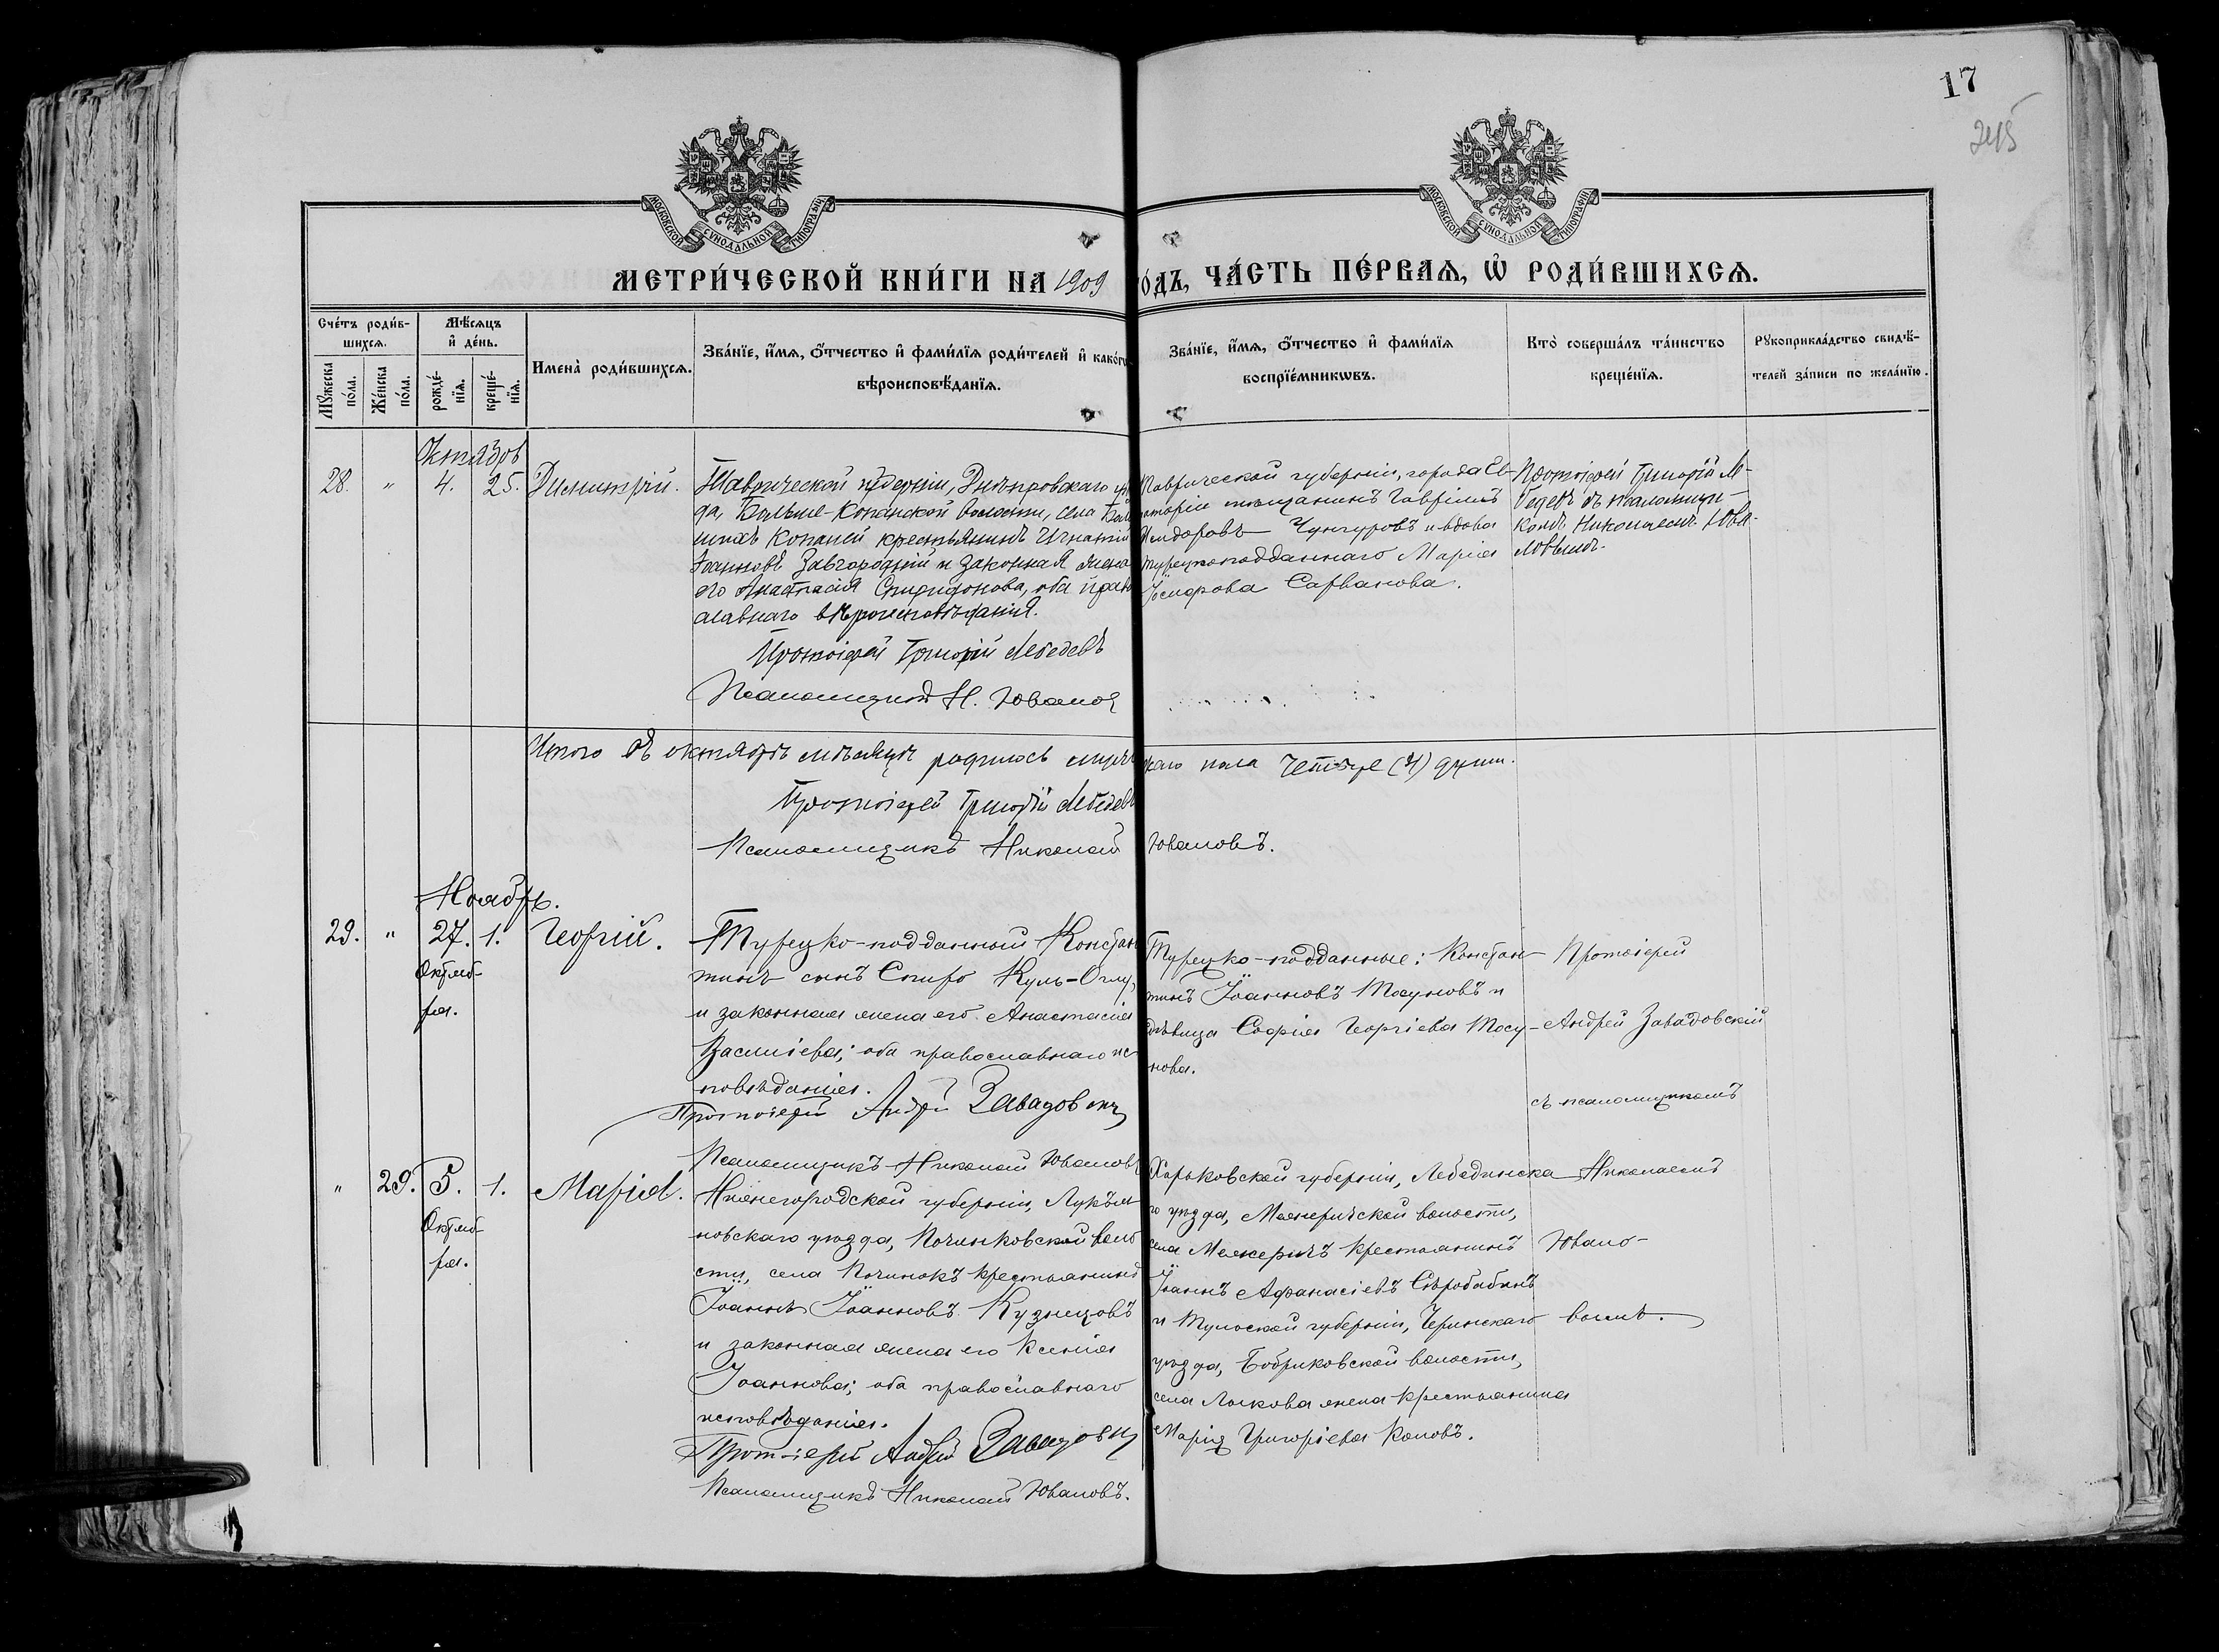 17
245
МОСКОВСКОЙ СУНОДАЛЬНОЙ ТИПОГРАФIИ
МОСКОВСКОЙ СУНОДАЛЬНОЙ ТИПОГРАФIИ
МЕТРИ́ЧЕСКОЙ КНИ́ГИ НА 1909 ГО́ДЪ, ЧА́СТЬ ПЕ́РВАѦ, Ѡ҆ РОДИ́ВШИХСѦ.
Сче́тъ роди́в-
шихсѧ.
Мѣ́сѧцъ
и҆ де́нь.
Мꙋ́жеска
по́ла.
Же́нска
по́ла.
рожде́-
нїѧ.
креще́-
нїѧ.
Имена̀ роди́вшихсѧ.
Зва́нїе, и҆́мѧ, ѻ҆́тчество и҆ фами́лїѧ роди́телей и҆ како́гѡ
вѣроисповѣ́данїѧ.
Зва́нїе, и҆́мѧ, ѻ҆́тчество и҆ фами́лїѧ
воспрїе́мникѡвъ.
Кто̀ соверша́лъ та́инство
креще́нїѧ.
Рꙋкоприкла́дство свидѣ́-
телей за́писи по жела́нїю.
Октябрь
28. " 4. 25. Димитрій.
Таврической губерніи, Днѣпровскаго уѣз
да, Больше-Копанской волости, села Боль
шихъ Копаней крестьянинъ Игнатій
Іоанновъ Завгородній и законная жена
его Анастасія Спиридонова, оба право
славнаго вѣроисповѣданія.
Протоіерей Григорій Лебедевъ
Псаломщикъ Н. Юваловъ
Таврической губерніи, города Ев-
паторіи мѣщанинъ Гавріилъ
Исидоровъ Чунгуровъ и вдова
турецкоподданнаго Марія
Іосифова Сарванова.
Протоіерей Григорій Ле-
бедевъ съ псаломщи-
комъ Николаемъ Юва-
ловымъ.
Итого въ октябрѣ мѣсяцѣ родилось мужескаго пола четыре (4) души.
Протоіерей Григорій Лебедевъ
Псаломщикъ Николай Юваловъ.
Ноябрь.
29. " 27. 1. Георгій.
Октяб-
ря.
Турецко-подданный Констан
тинъ сынъ Спиро Куль-Оглу,
и законная жена его Анастасія
Васильева; оба православнаго ис
повѣданія.
Протоіерей Андрей Завадовскій
Псаломщикъ Николай Юваловъ
Турецко-подданные: Констан-
тинъ Іоанновъ Тосуновъ и
дѣвица Софія Георгіева Тосу-
нова.
Протоіерей
Андрей Завадовскій
съ псаломщикомъ
Николаемъ
Ювало-
вымъ.
" 29. 5. 1. Марія.
Октяб-
ря.
Нижегородской губерніи, Лукоя
новскаго уѣзда, Починковской воло
сти, села Починокъ крестьянинъ
Іоаннъ Іоанновъ Кузнецовъ
и законная жена его Ксенія
Іоаннова; оба православнаго
исповѣданія.
Протоіерей Андрей Завадовскій
Псаломщикъ Николай Юваловъ.
Харьковской губерніи, Лебединска
го уѣзда, Межеричской волости,
села Межеричъ крестьянинъ
Іоаннъ Афанасіевъ Сѣробабинъ
и Тульской губерніи, Чернскаго
уѣзда, Бобриковской волости,
села Лыкова жена крестьянина
Марія Григоріева Коловъ.